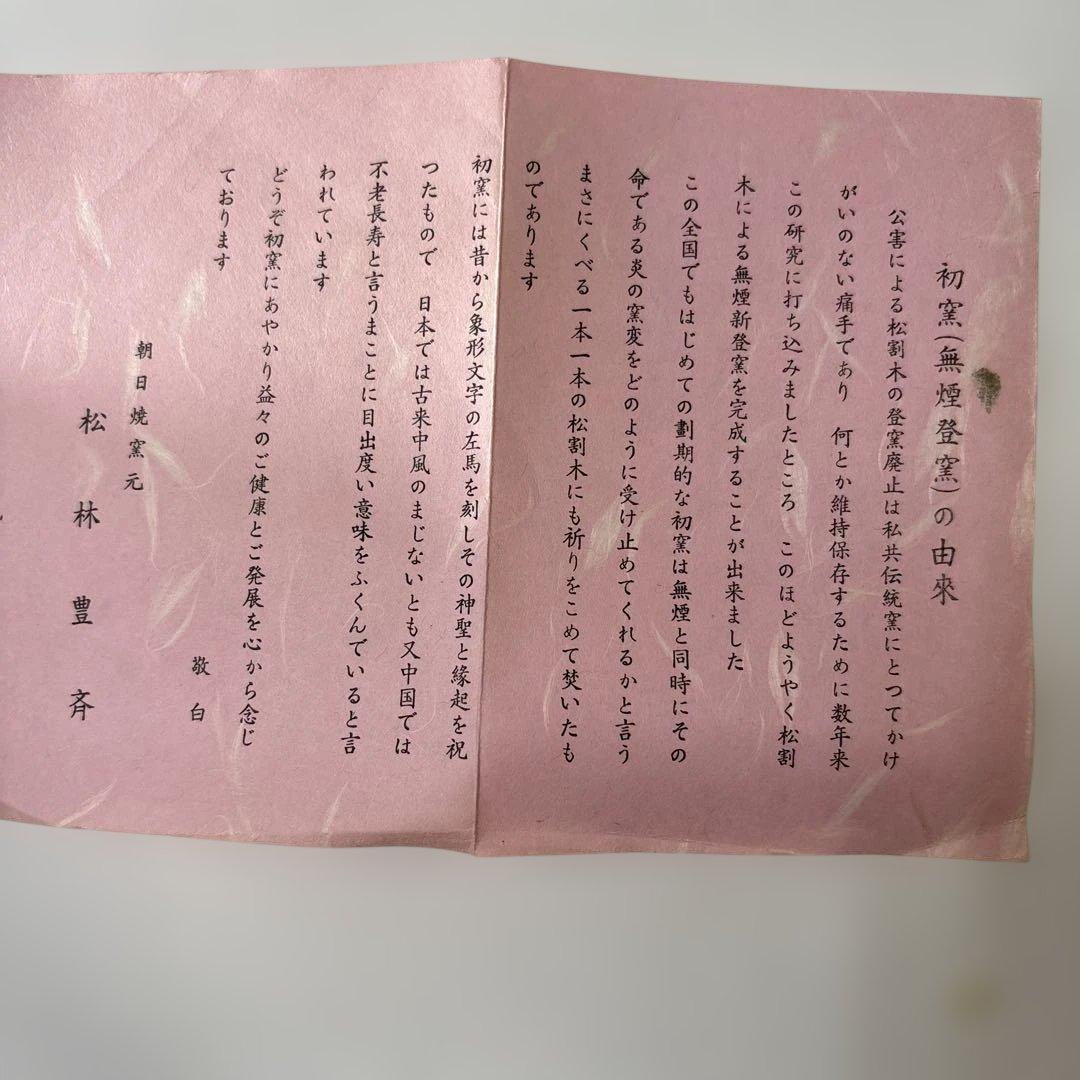 初窯(無煙登窯)の由來
公害による松割木の登窯廃止は私共伝統窯にとつてかけ
がいのない痛手であり　何とか維持保存するために数年来
この研究に打ち込みましたところ　このほどようやく松割
木による無煙新登窯を完成することが出来ました
この全国でもはじめての劃期的な初窯は無煙と同時にその
命である炎の窯変をどのように受け止めてくれるかと言う
まさにくべる一本一本の松割木にも祈りをこめて焚いたも
のであります
初窯には昔から象形文字の左馬を刻しその神聖と縁起を祝
つたもので　日本では古来中風のまじないとも又中国では
不老長寿と言うまことに目出度い意味をふくんでいると言
われています
どうぞ初窯にあやかり益々のご健康とご発展を心から念じ
ております
敬白
朝日焼窯元
松林豊斉